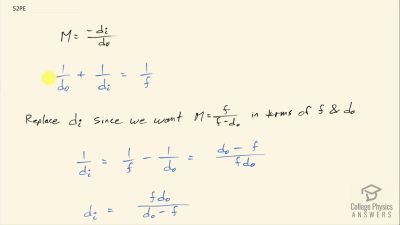 52PE
M = -di/do
1/do + 1/di = 1/f
Replace di since we want M = f/f-do in terms of f & do
1/di = 1/f - 1/do = do - f/fdo
di = fdo/do - f
College Physics
ANSWERS